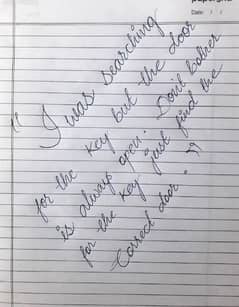 Date: / /
" I was searching
for the key but the door
is always open. Don't bother
for the key just find the
Correct door. "